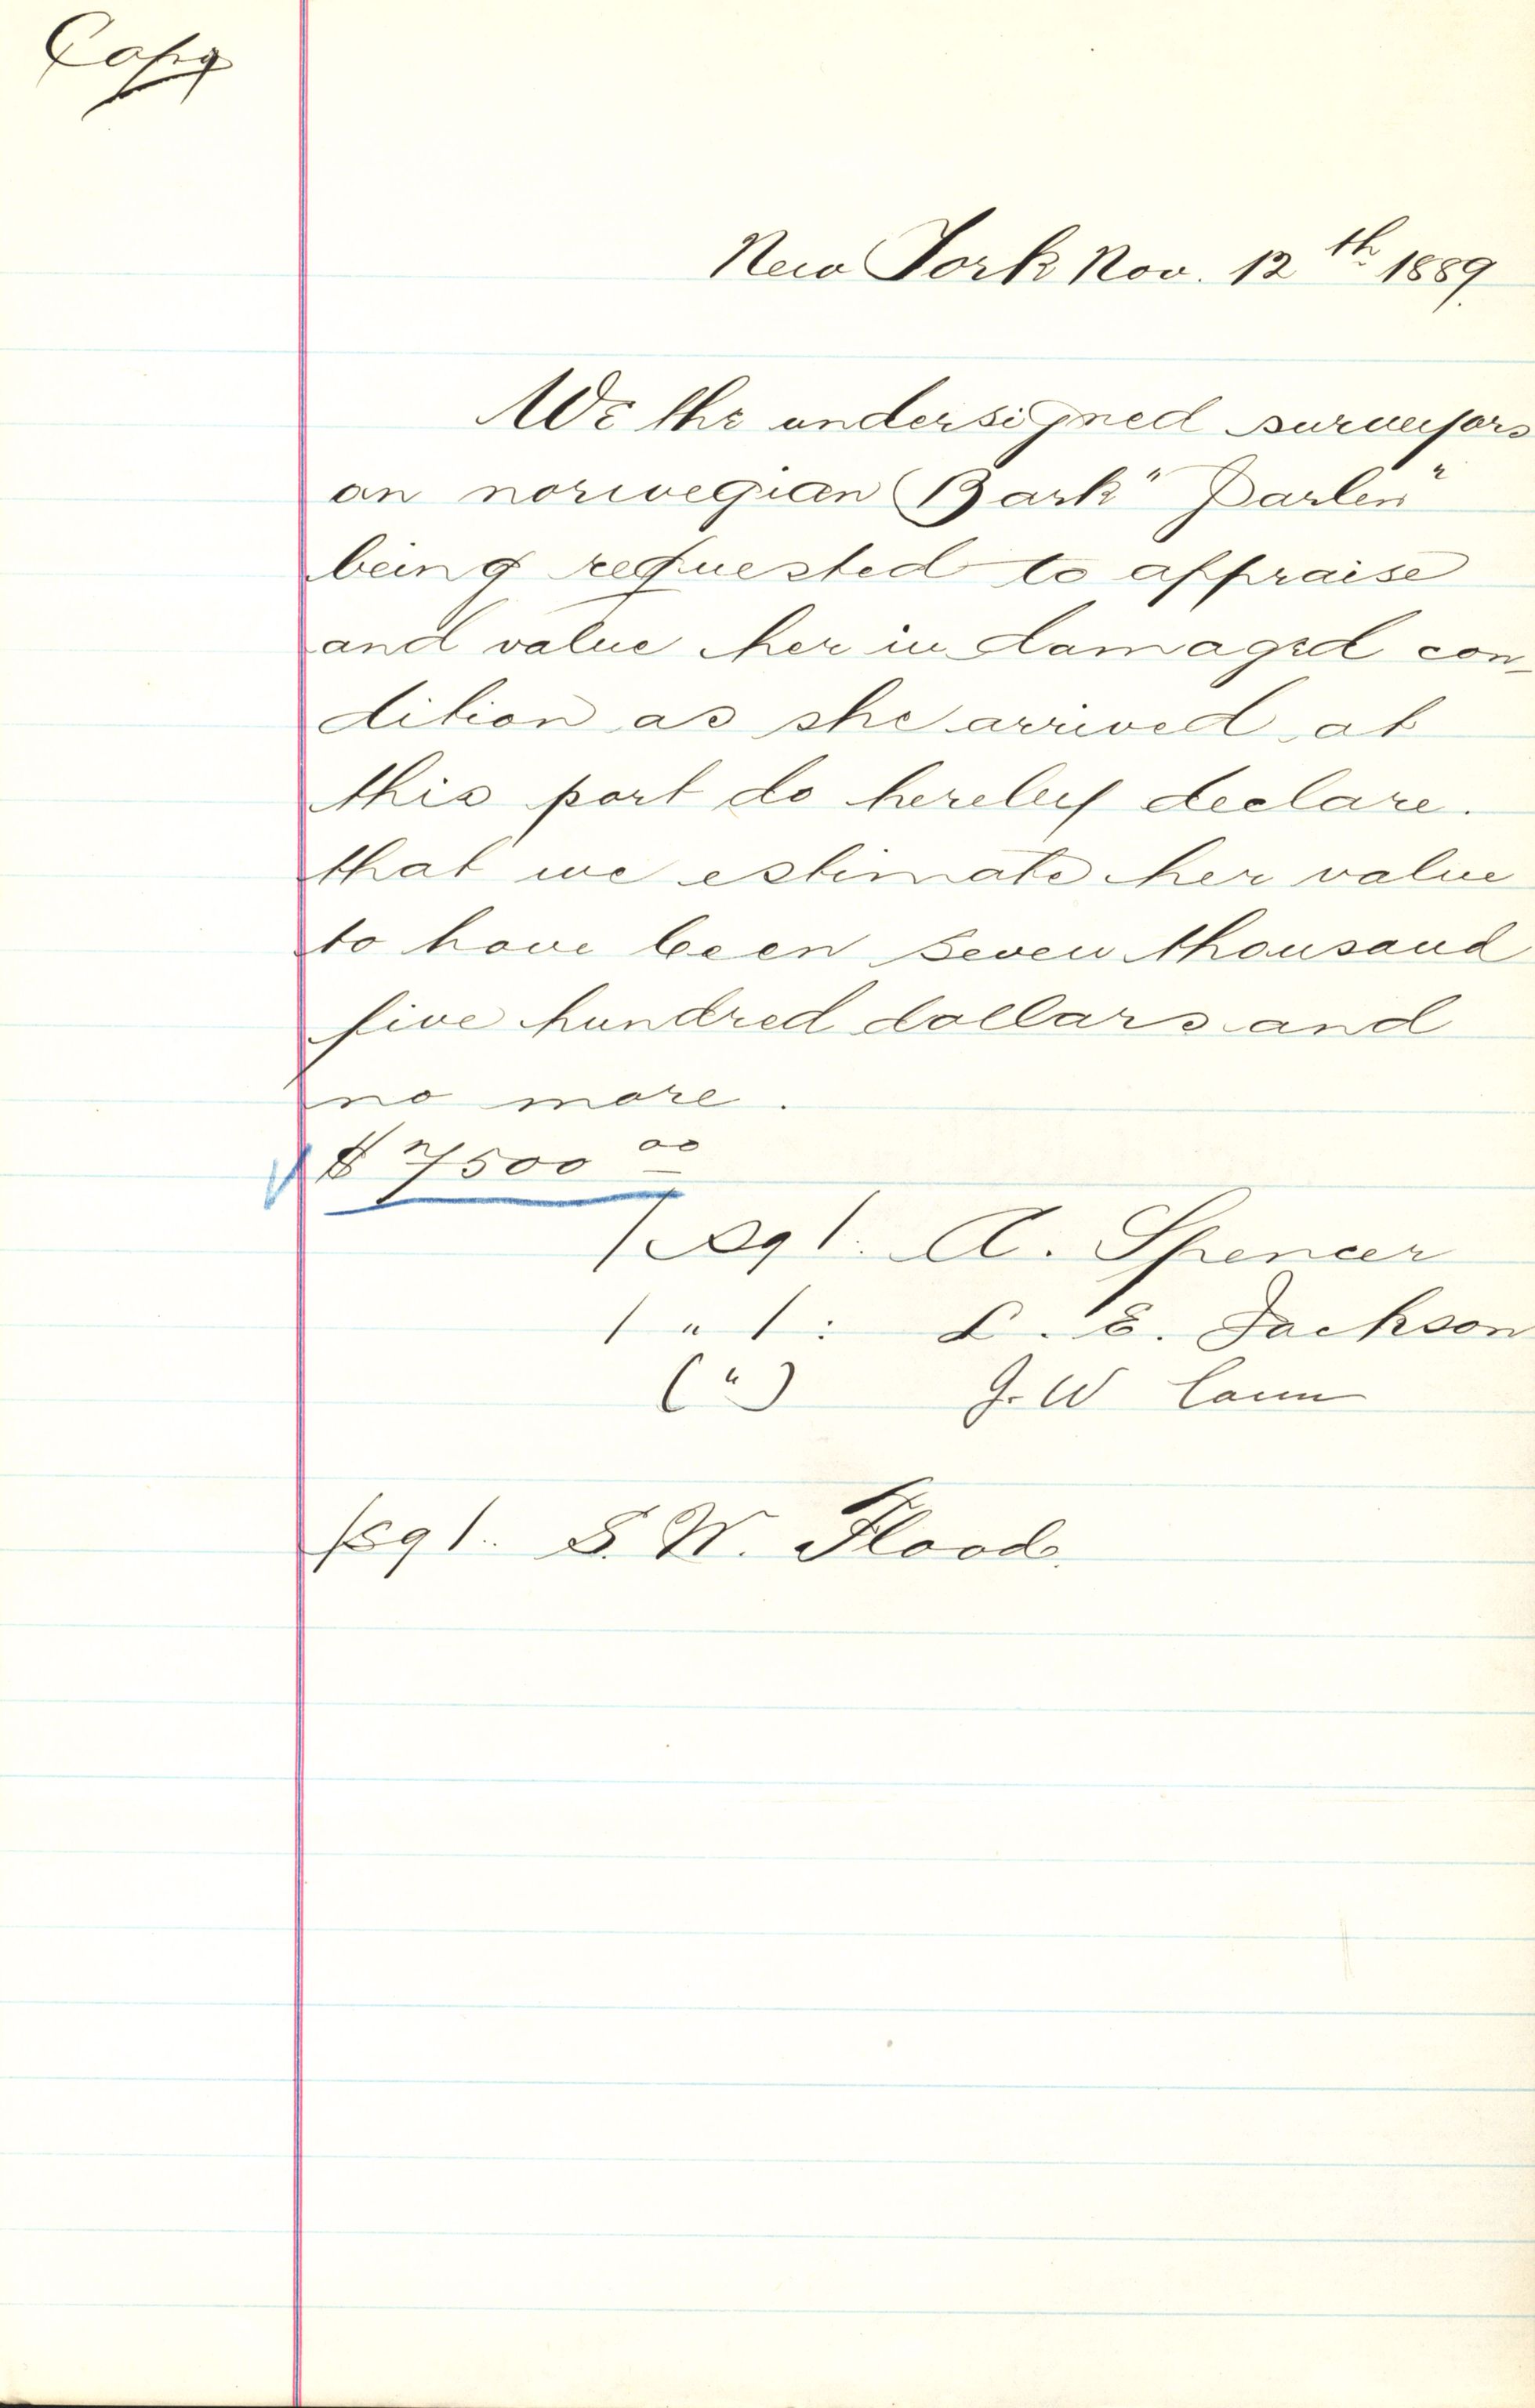 Copy
New York Nov. 12th 1889.
We the undersigned surveyors
on norwegian Bark "Parlen"
being requested to appraise
and value her in damaged con-
dition as she arrived at
this port do hereby declare.
that we estimate her value
to have been seven thousand
five hundred dollars and
no more.
$ 7500 00
/sg/: A. Spencer
/ " /: L. E. Jackson
( " ) J. W
/sg/. S. W. Flood.